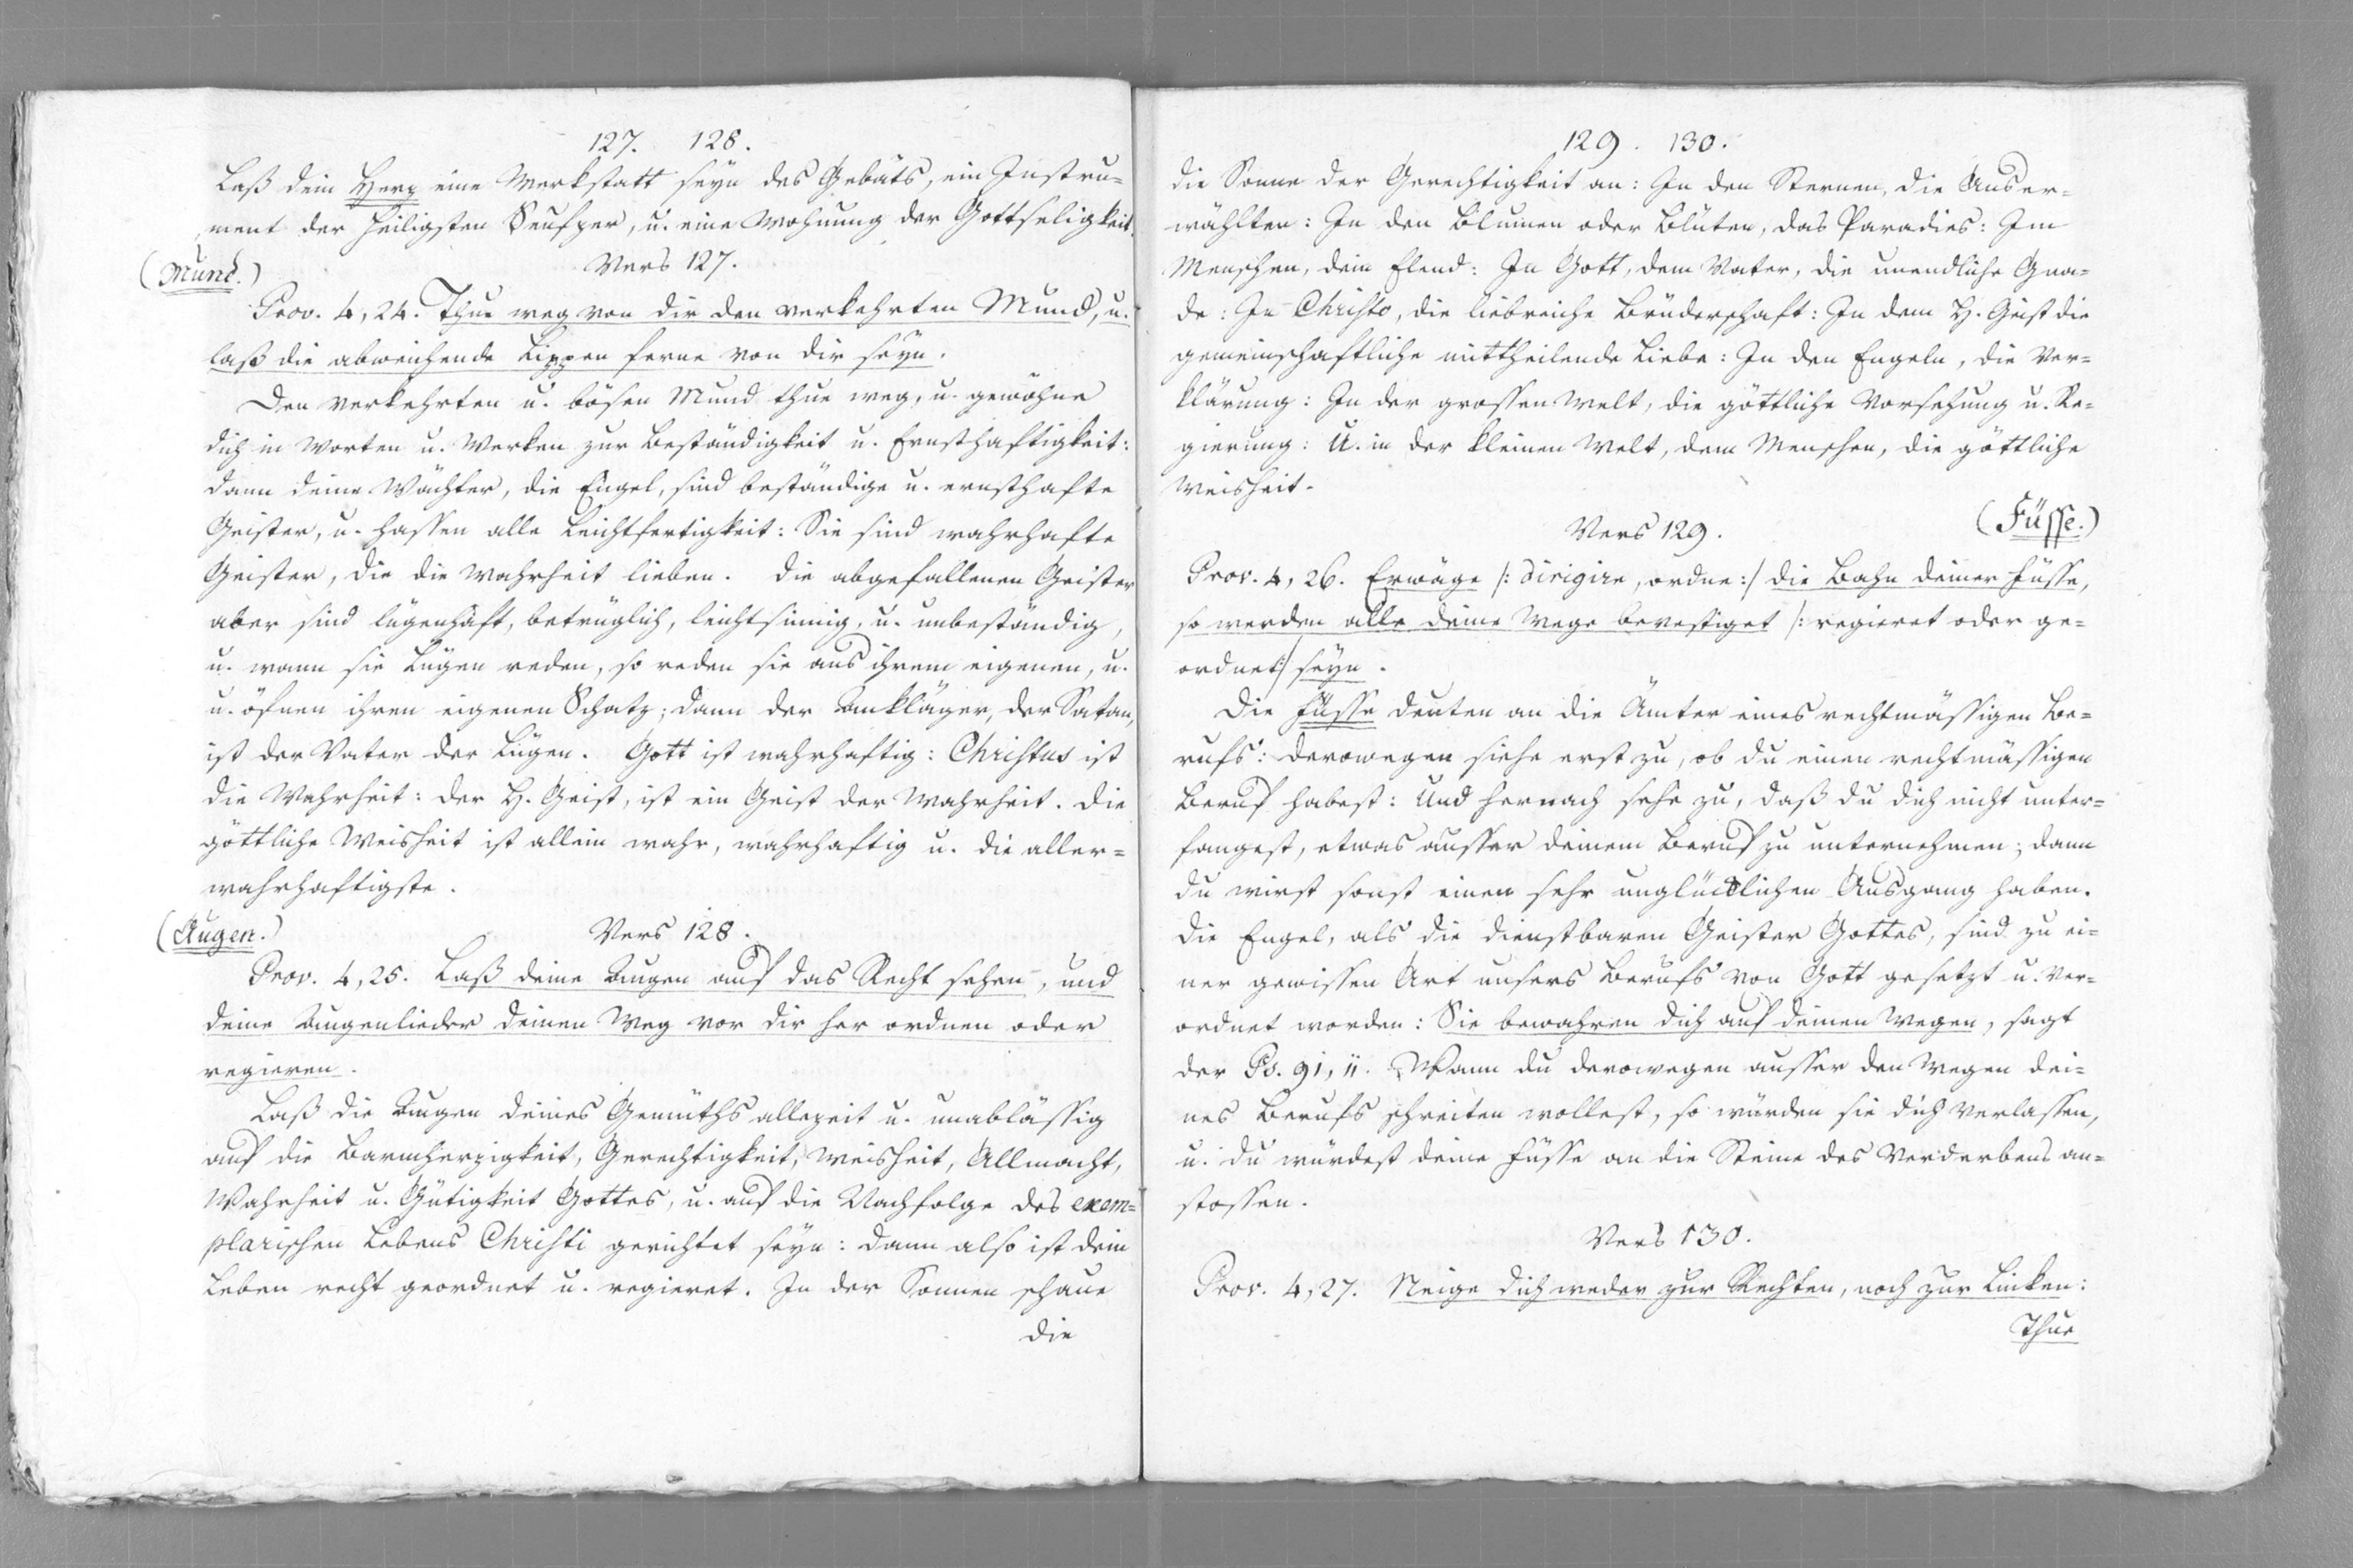 127. 128.
Laß dein Herz eine Werkstatt seyn des Gebäts, ein Instru-
ment der heiligsten Seufzer, u. eine Wohnung der Gottseligkeit.
(Mund.)
Vers 127.
Prov. 4, 24. Thue weg von dir den verkehrten Mund, u.
laß die abweichende Lippen ferne von dir seyn.
Den verkehrten u. bösen Mund thue weg, u. gewöhne
dich in Worten u. Werken zur Beständigkeit u. Ernsthaftigkeit:
dann deine Wächter, die Engel, sind beständige u. ernsthafte
Geister, u. hassen alle Leichtfertigkeit: Sie sind wahrhafte
Geister, die die Wahrheit lieben. Die abgefallenen Geister
aber sind lügenhaft, betrüglich, leichtsinnig, u. unbeständig,
u. wann sie Lügen reden, so reden sie aus ihrem eigenen, u.
u. öfnen ihren eigenen Schatz; dann der Ankläger, der Satan,
ist der Vater der Lügen. Gott ist wahrhaftig: Christus ist
die Wahrheit: der H. Geist, ist ein Geist der Wahrheit. Die
göttliche Weisheit ist allein wahr, wahrhaftig u. die aller-
wahrhaftigste.
(Augen.)
Vers 128.
Prov. 4, 25. Laß deine Augen auf das Recht sehen, und
deine Augenlieder deinen Weg vor dir her ordnen oder
regieren.
Laß die Augen deines Gemüths allezeit u. unablässig
auf die Barmherzigkeit, Gerechtigkeit, Weisheit, Allmacht,
Wahrheit u. Gütigkeit Gottes, u. auf die Nachfolge des exem-
plarischen Lebens Christi gerichtet seyn: dann also ist dein
Leben recht geordnet u. regieret. In der Sonnen schaue
die
129. 130.
die Sonne der Gerechtigkeit an: In den Sternen, die Auser-
wählten: In den Blumen oder Blüten, das Paradies: Im
Menschen, dein Elend: In Gott, dem Vater, die unendliche Gna-
de: In Christo, die liebreiche Brüderschaft: In dem H. Geist die
gemeinschaftliche mittheilende Liebe: In den Engeln, die Ver-
klärung: In der grossen Welt, die göttliche Vorsehung u. Re-
gierung: U. in der kleinen Welt, dem Menschen, die göttliche
Weisheit.
Vers 129.
(Füsse.)
Prov. 4, 26. Erwäge /: dirigire, ordne :/ die Bahn deiner Füsse,
so werden alle deine Wege bevestiget /: regieret oder ge-
ordnet :/ seyn.
Die Füsse deuten an die Ämter eines rechtmässigen Be-
rufs: derowegen siehe erst zu, ob du einen rechtmässigen
Beruf habest: Und hernach sehe zu, daß du dich nicht unter-
fangest, etwas ausser deinem Beruf zu unternehmen; dann
du wirst sonst einen sehr unglücklichen Ausgang haben.
Die Engel, als die dienstbaren Geister Gottes, sind zu ei-
ner gewissen Art unsers Berufs von Gott gesetzt u. ver-
ordnet worden: Sie bewahren dich auf deinen Wegen, sagt
der Ps. 91, 11. Wann du derowegen ausser den Wegen dei-
nes Berufs schreiten wollest, so würden sie dich verlassen,
u. du würdest deine Füsse an die Steine des Verderbens an-
stossen.
Vers 130.
Prov. 4, 27. Neige dich weder zur Rechten, noch zur Linken:
Thue